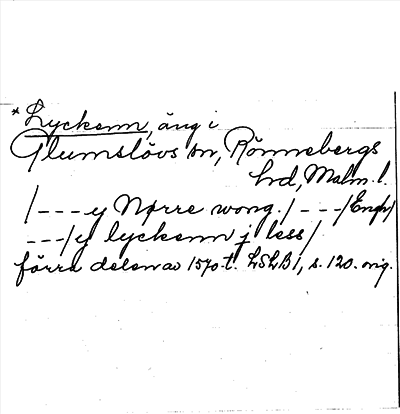 *Lyckenn, äng i
Glumslövs sn, Rönnebergs
hd, Malm. l.
/--- y Nørre wong./ ---/Engh/
---/y lyckenn j less/
förra delen av 1570-t. LSLB1, s. 120. orig.